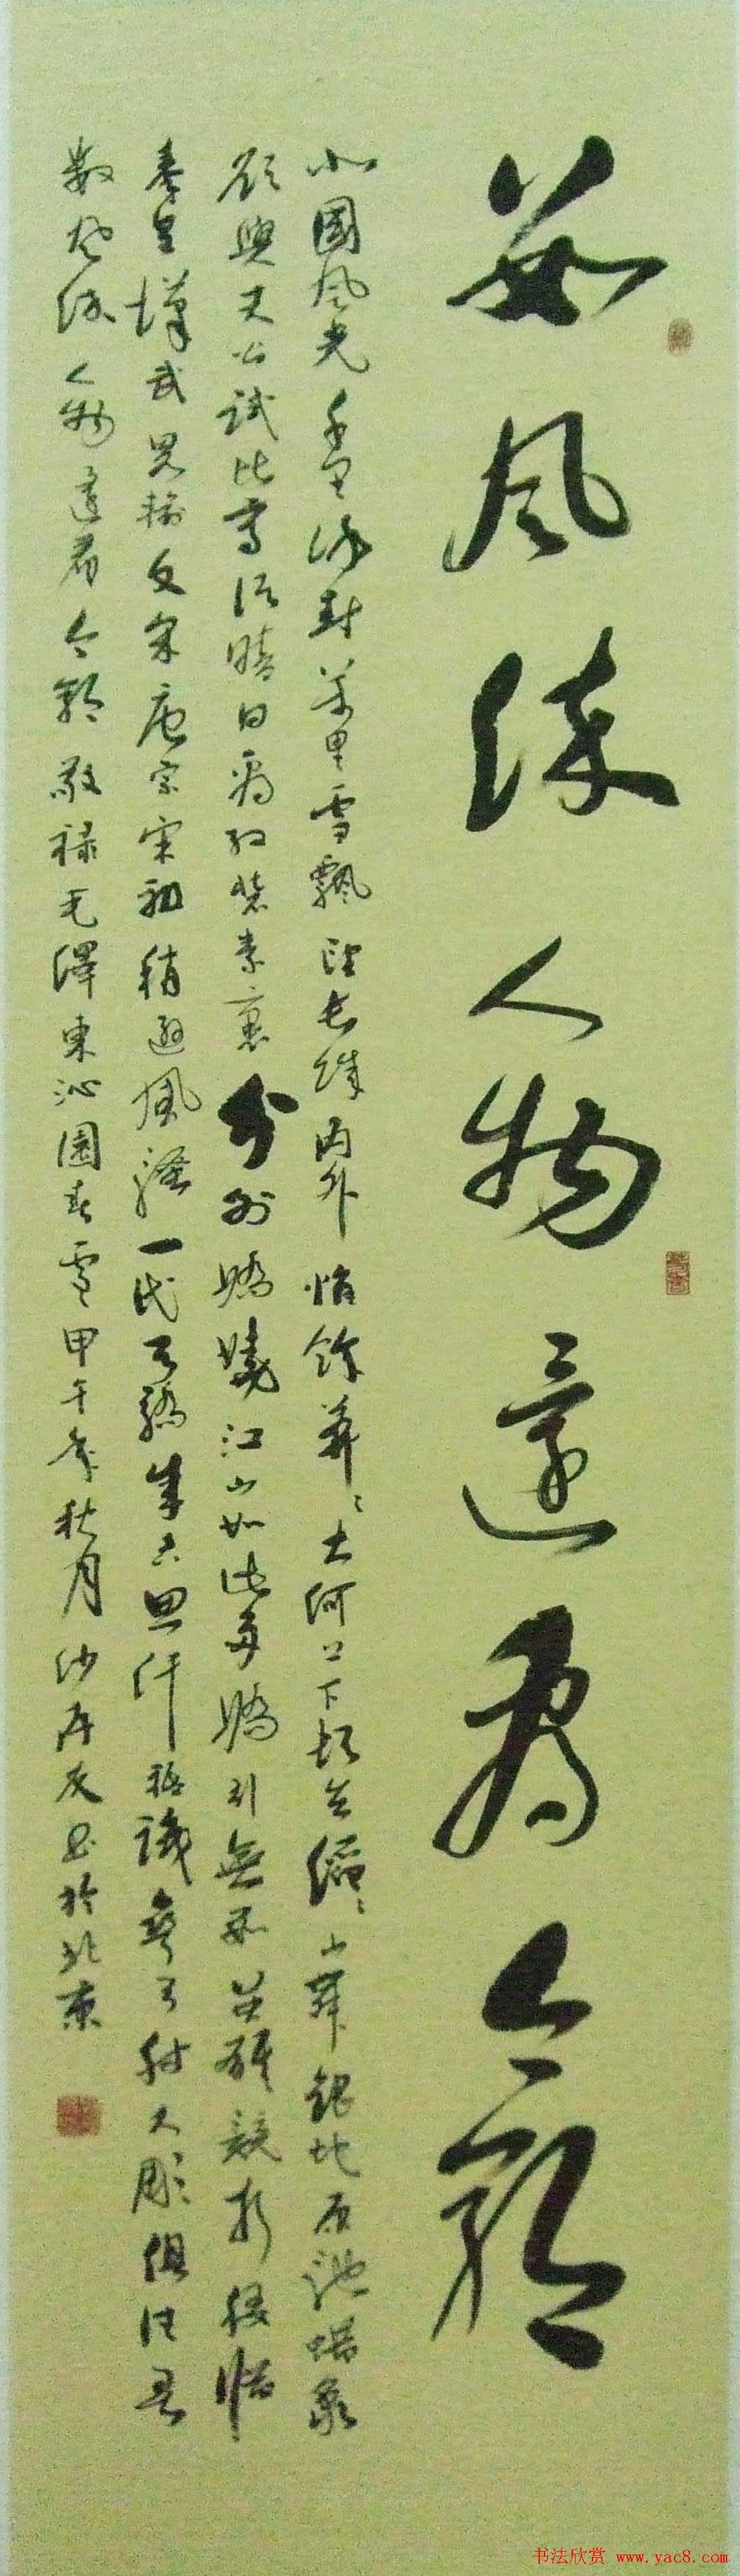 數風流人物還看今朝
北國風光千里冰封萬里雪飄望長城內外惟餘莽々大河上下頓失滔々山舞銀蛇原馳蠟象
欲與天公試比高須晴日看紅裝素裹分外嬌嬈江山如此多嬌引無數英雄競折腰惜
秦皇漢武略輸文采唐宗宋祖稍遜風騷一代天驕成吉思汗祗識彎弓射大雕俱往矣
數風流人物還看今朝敬祿毛澤東沁園春雪甲午年秋月書於北京
书法欣赏 www.yac8.com